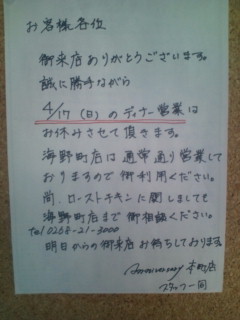 お客様各位
御来店ありがとうございます。
誠に勝手ながら
4/17 (日) のディナー営業は
お休みさせて頂きます。
海野町店は通常通り営業して
おりますので御利用ください。
尚、ローストチキンに関しましても
海野町店まで御相談ください。
tel 0268-21-3000
明日からの御来店お待ちしております。
Anniversary 本町店
スタッフ一同